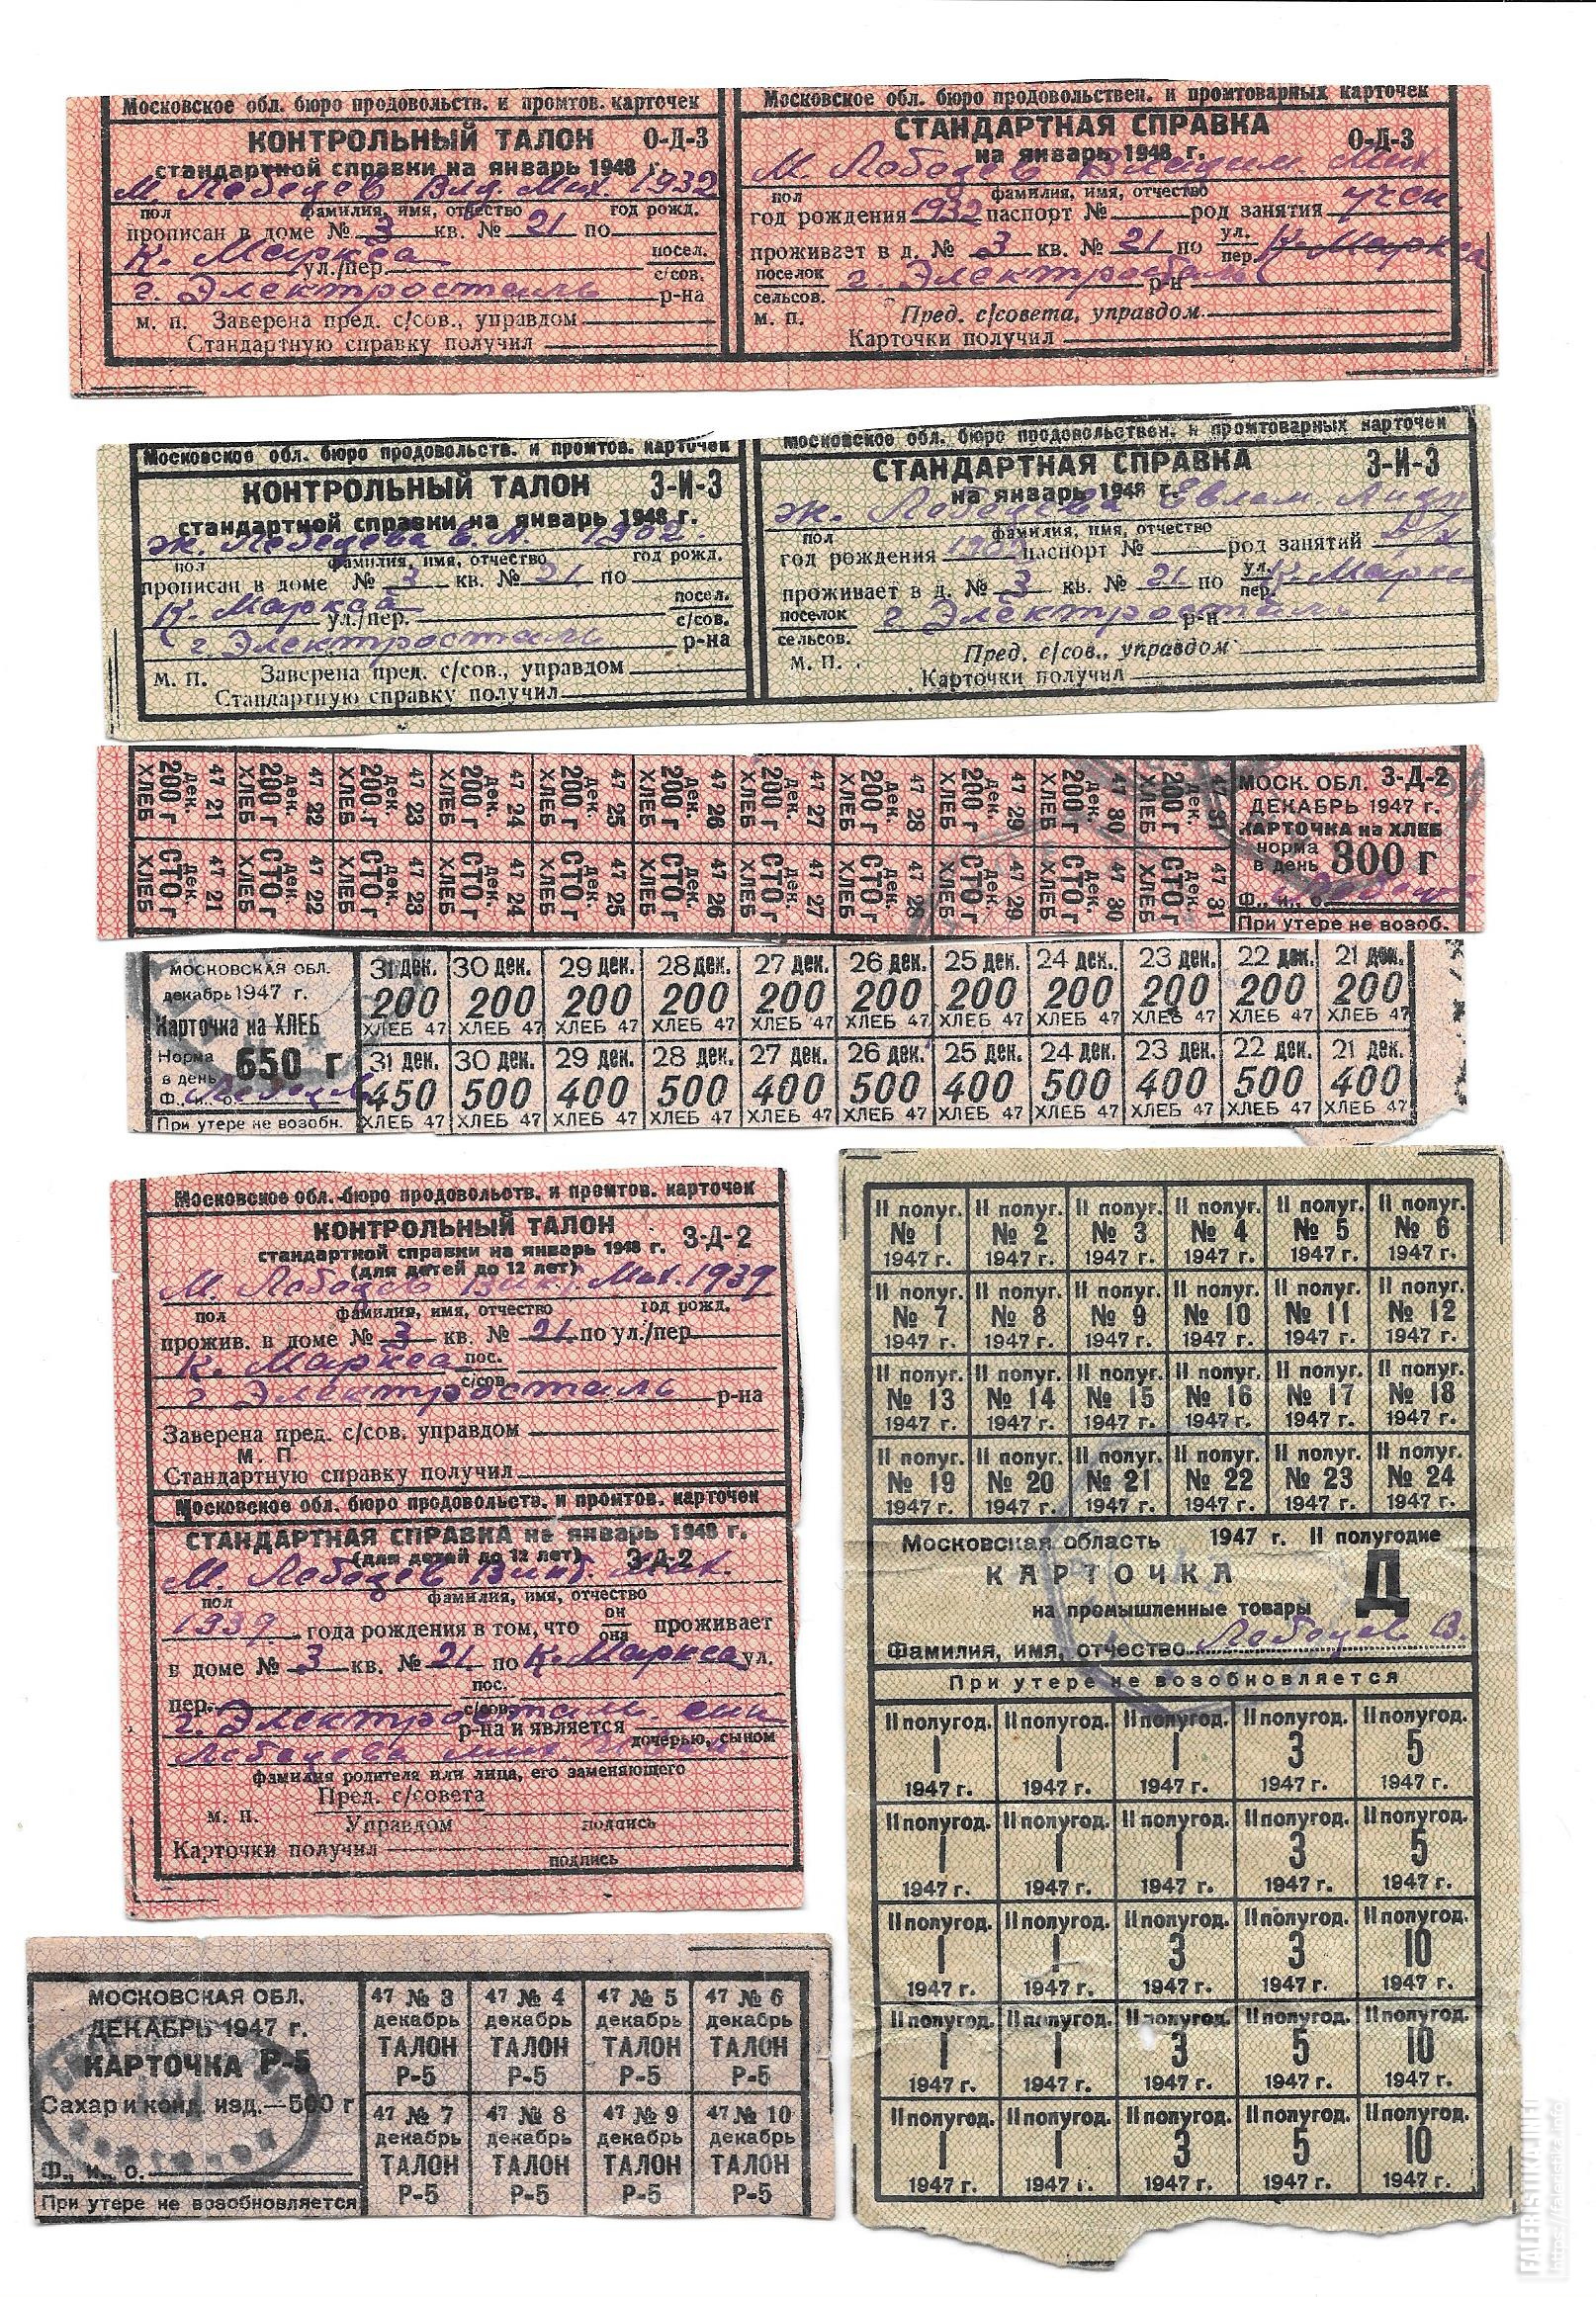 Московское обл. бюро продовольств. и промтов. карточек
КОНТРОЛЬНЫЙ ТАЛОН О-Д-3
стандартной справки на январь 1948 г.
М. Лебедев Влд. Мих. 1932
пол фамилия, имя, отчество год рожд.
прописан в доме № 3 кв. № 21 по
К. Маркса ул./пер. посел. с/сов.
г. Электросталь р-на
м. п. Заверена пред. с/сов., управдом
Стандартную справку получил
Московское обл. бюро продовольствен. и промтоварных карточек
СТАНДАРТНАЯ СПРАВКА О-Д-3
на январь 1948 г.
М. Лебедев Владим. Мих
пол фамилия, имя, отчество
год рождения 1932 паспорт № род занятия учен
проживает в д. № 3 кв. № 21 по ул. пер. К. Маркса
поселок сельсов. г. Электросталь р-н
м. п. Пред. с/совета, управдом
Карточки получил
Московское обл. бюро продовольств. и промтов. карточек
КОНТРОЛЬНЫЙ ТАЛОН З-И-З
стандартной справки на январь 1948 г.
ж. Лебедева Е. А. 1902
пол фамилия, имя, отчество год рожд.
прописан в доме № 3 кв. № 21 по
К. Маркса ул./пер. посел. с/сов.
г. Электросталь р-на
м. п. Заверена пред. с/сов., управдом
Стандартную справку получил
Московское обл. бюро продовольствен. и промтоварных карточек
СТАНДАРТНАЯ СПРАВКА З-И-З
на январь 1948 г.
ж. Лебедева
пол фамилия, имя, отчество
год рождения 1902 паспорт № род занятий д/х
проживает в д. № 3 кв. № 21 по ул. пер. К. Маркс
поселок сельсов. г Электросталь р-н
М. П. Пред. с/сов., управдом
Карточки получил
47 21 47 22 47 23 47 24 47 25 47 26 47 27 47 28 47 29 47 30 47 31
дек. дек. дек. дек. дек. дек. дек. дек. дек. дек. дек.
200 г 200 г 200 г 200 г 200 г 200 г 200 г 200 г 200 г 200 г 200 г
ХЛЕБ ХЛЕБ ХЛЕБ ХЛЕБ ХЛЕБ ХЛЕБ ХЛЕБ ХЛЕБ ХЛЕБ ХЛЕБ ХЛЕБ
47 21 47 22 47 23 47 24 47 25 47 26 47 27 47 28 47 29 47 30 47 31
дек. дек. дек. дек. дек. дек. дек. дек. дек. дек. дек.
СТО г СТО г СТО г СТО г СТО г СТО г СТО г СТО г СТО г СТО г СТО г
ХЛЕБ ХЛЕБ ХЛЕБ ХЛЕБ ХЛЕБ ХЛЕБ ХЛЕБ ХЛЕБ ХЛЕБ ХЛЕБ ХЛЕБ
МОСК. ОБЛ. З-Д-2
ДЕКАБРЬ 1947 г.
КАРТОЧКА на ХЛЕБ
норма в день 300 г
Ф., и., о.
При утере не возоб.
МОСКОВСКАЯ ОБЛ.
декабрь 1947 г.
Карточка на ХЛЕБ
Норма в день 650 г
Ф., и., о. Лебедев
При утере не возобн.
31 дек. 30 дек. 29 дек. 28 дек. 27 дек. 26 дек. 25 дек. 24 дек. 23 дек. 22 дек. 21 дек.
200 200 200 200 200 200 200 200 200 200 200
ХЛЕБ 47 ХЛЕБ 47 ХЛЕБ 47 ХЛЕБ 47 ХЛЕБ 47 ХЛЕБ 47 ХЛЕБ 47 ХЛЕБ 47 ХЛЕБ 47 ХЛЕБ 47 ХЛЕБ 47
31 дек. 30 дек. 29 дек. 28 дек. 27 дек. 26 дек. 25 дек. 24 дек. 23 дек. 22 дек. 21 дек.
450 500 400 500 400 500 400 500 400 500 400
ХЛЕБ 47 ХЛЕБ 47 ХЛЕБ 47 ХЛЕБ 47 ХЛЕБ 47 ХЛЕБ 47 ХЛЕБ 47 ХЛЕБ 47 ХЛЕБ 47 ХЛЕБ 47 ХЛЕБ 47
Московское обл. бюро продовольств. и промтов. карточек
КОНТРОЛЬНЫЙ ТАЛОН З-Д-2
стандартной справки на январь 1948 г.
(для детей до 12 лет)
М. Лебедев Вик. Мих. 1939
пол фамилия, имя, отчество год рожд.
прожив. в доме № 3 кв. № 21 по ул./пер.
К. Маркса пос. с/сов.
г. Электросталь р-на
Заверена пред. с/сов. управдом
М. П.
Стандартную справку получил
Московское обл. бюро продовольств. и промтов. карточек
СТАНДАРТНАЯ СПРАВКА на январь 1948 г.
(для детей до 12 лет) З-Д-2
М. Лебедев Викт. Мих.
пол фамилия, имя, отчество
1939 года рождения в том, что он она проживает
в доме № 3 кв. № 21 по К. Маркса ул.
пер. пос. с/сов.
г. Электростал. р-на и является сын
дочерью, сыном
Лебедева Мих.
фамилия родителя или лица, его заменяющего
Пред. с/совета
м. п. Управдом подпись
Карточки получил
подпись
II полуг. II полуг. II полуг. II полуг. II полуг. II полуг.
№ 1 № 2 № 3 № 4 № 5 № 6
1947 г. 1947 г. 1947 г. 1947 г. 1947 г. 1947 г.
II полуг. II полуг. II полуг. II полуг. II полуг. II полуг.
№ 7 № 8 № 9 № 10 № 11 № 12
1947 г. 1947 г. 1947 г. 1947 г. 1947 г. 1947 г.
II полуг. II полуг. II полуг. II полуг. II полуг. II полуг.
№ 13 № 14 № 15 № 16 № 17 № 18
1947 г. 1947 г. 1947 г. 1947 г. 1947 г. 1947 г.
II полуг. II полуг. II полуг. II полуг. II полуг. II полуг.
№ 19 № 20 № 21 № 22 № 23 № 24
1947 г. 1947 г. 1947 г. 1947 г. 1947 г. 1947 г.
Московская область 1947 г. II полугодие
КАРТОЧКА Д
на промышленные товары
Фамилия, имя, отчество Лебедев В.
При утере не возобновляется
II полугод. II полугод. II полугод. II полугод. II полугод.
1 1 1 3 5
1947 г. 1947 г. 1947 г. 1947 г. 1947 г.
II полугод. II полугод. II полугод. II полугод. II полугод.
1 1 1 3 5
1947 г. 1947 г. 1947 г. 1947 г. 1947 г.
II полугод. II полугод. II полугод. II полугод. II полугод.
1 1 3 3 10
1947 г. 1947 г. 1947 г. 1947 г. 1947 г.
II полугод. II полугод. II полугод. II полугод. II полугод.
1 1 3 5 10
1947 г. 1947 г. 1947 г. 1947 г. 1947 г.
II полугод. II полугод. II полугод. II полугод. II полугод.
1 1 3 5 10
1947 г. 1947 г. 1947 г. 1947 г. 1947 г.
МОСКОВСКАЯ ОБЛ.
ДЕКАБРЬ 1947 г.
КАРТОЧКА Р-5
Сахар и конд. изд.—500 г
Ф., и., о.
При утере не возобновляется
47 № 3 47 № 4 47 № 5 47 № 6
декабрь декабрь декабрь декабрь
ТАЛОН ТАЛОН ТАЛОН ТАЛОН
Р-5 Р-5 Р-5 Р-5
47 № 7 47 № 8 47 № 9 47 № 10
декабрь декабрь декабрь декабрь
ТАЛОН ТАЛОН ТАЛОН ТАЛОН
Р-5 Р-5 Р-5 Р-5
FALERISTIKA.INFO
https://faleristika.info